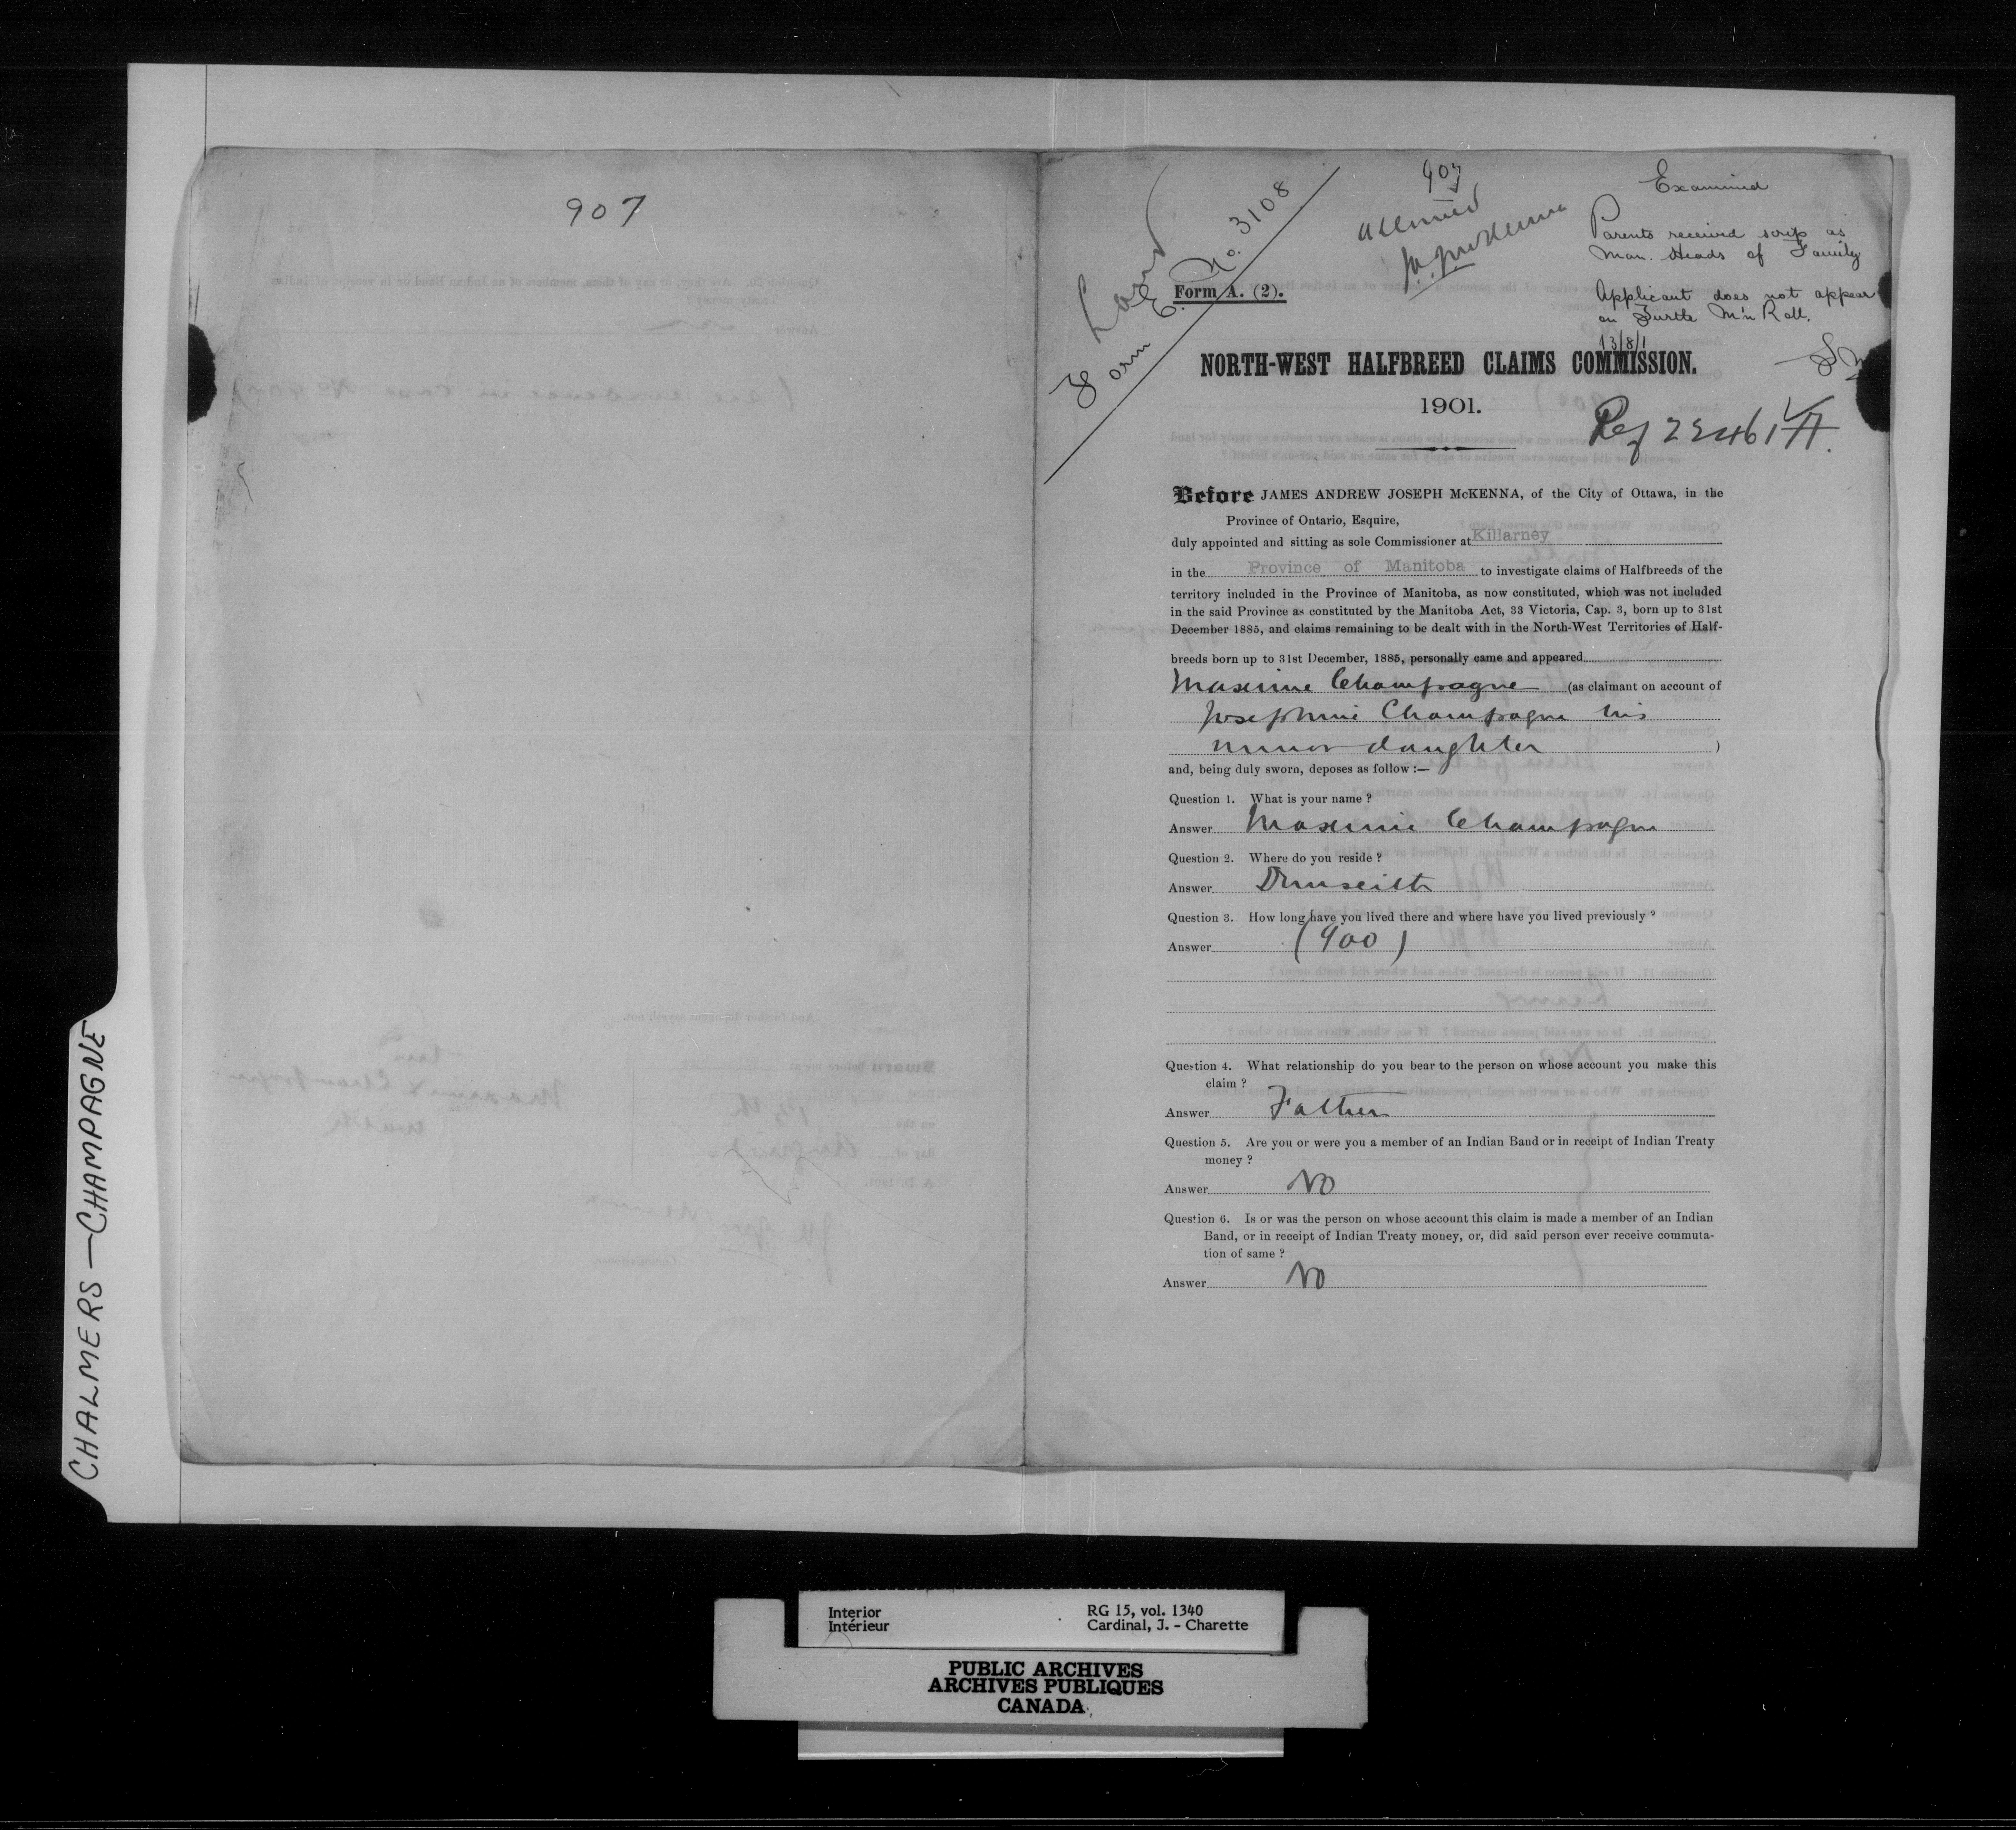 907
CHALMERS — CHAMPAGNE
Land
Form E. No. 3108
907
J.A.J. McKenna
Examined
Parents received scrip as
Man. Heads of Family
Applicant does not appear
on Turtle M'n Roll.
13/8/1
Form A. (2).
NORTH-WEST HALFBREED CLAIMS COMMISSION.
1901.
Ref
Before JAMES ANDREW JOSEPH McKENNA, of the City of Ottawa, in the
Province of Ontario, Esquire,
duly appointed and sitting as sole Commissioner at Killarney
in the Province of Manitoba to investigate claims of Halfbreeds of the
territory included in the Province of Manitoba, as now constituted, which was not included
in the said Province as constituted by the Manitoba Act, 33 Victoria, Cap. 3, born up to 31st
December 1885, and claims remaining to be dealt with in the North-West Territories of Half-
breeds born up to 31st December, 1885, personally came and appeared
Maxime Champagne (as claimant on account of
Josephine Champagne his
minor daughter )
and, being duly sworn, deposes as follow :—
Question 1. What is your name ?
Answer Maxime Champagne
Question 2. Where do you reside ?
Answer Dunseith
Question 3. How long have you lived there and where have you lived previously ?
Answer (900)
Question 4. What relationship do you bear to the person on whose account you make this
claim ?
Answer Father
Question 5. Are you or were you a member of an Indian Band or in receipt of Indian Treaty
money ?
Answer No
Question 6. Is or was the person on whose account this claim is made a member of an Indian
Band, or in receipt of Indian Treaty money, or, did said person ever receive commuta-
tion of same ?
Answer No
Interior
Intérieur
RG 15, vol. 1340
Cardinal, J. - Charette
PUBLIC ARCHIVES
ARCHIVES PUBLIQUES
CANADA